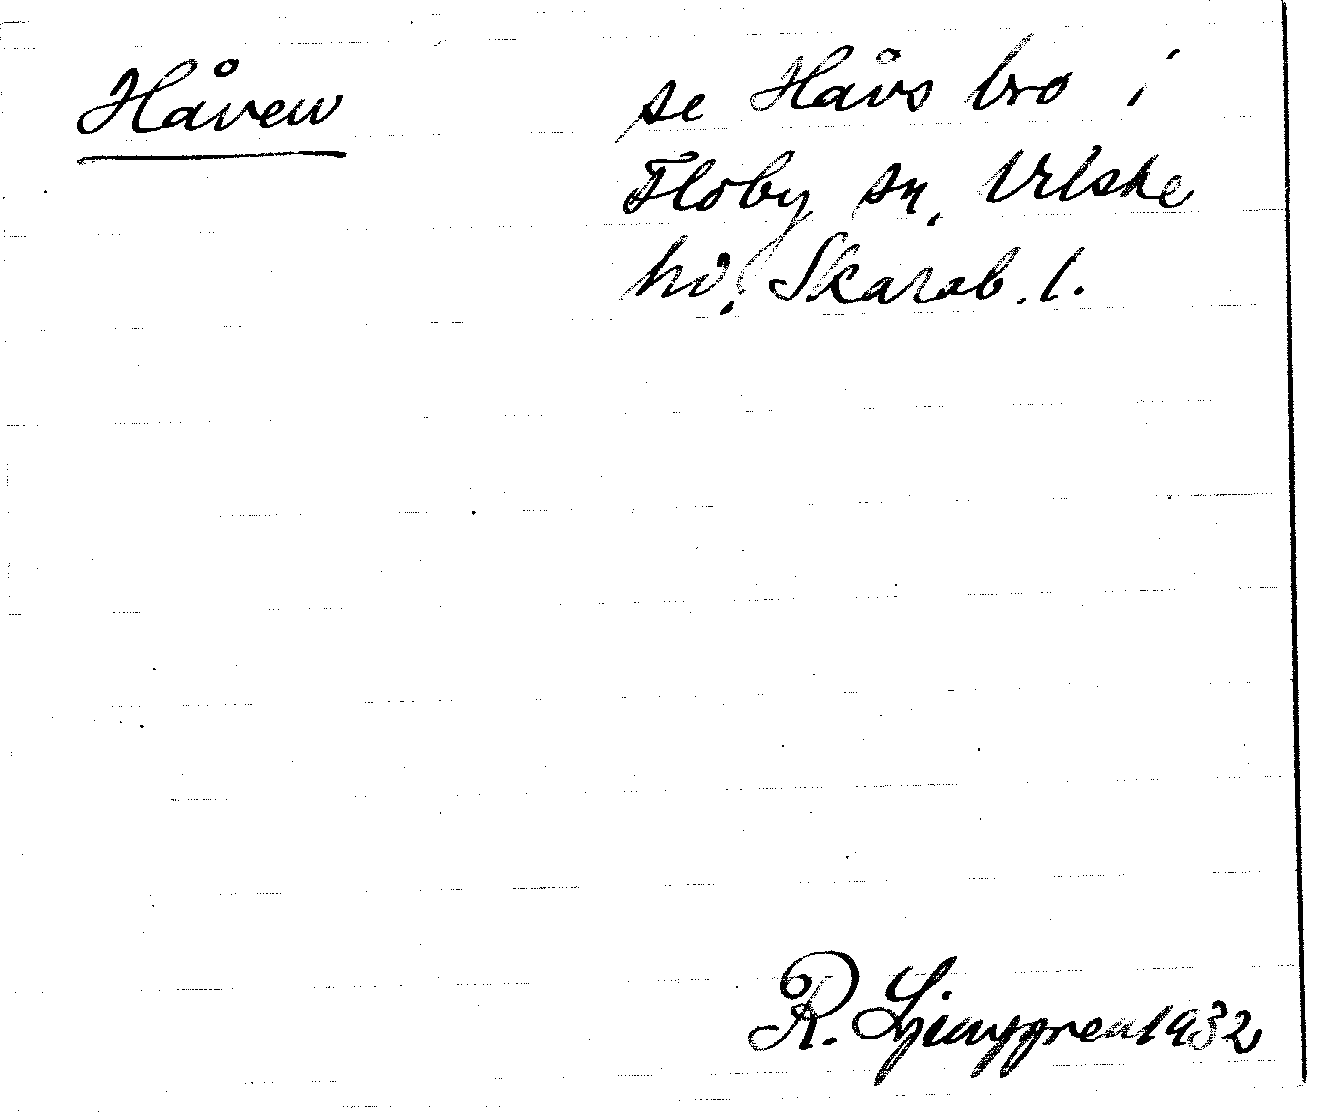 Håven
se Håvs bro i
Floby sn, Vilske
hd. Skarab. l.
R. Ljunggren 1932